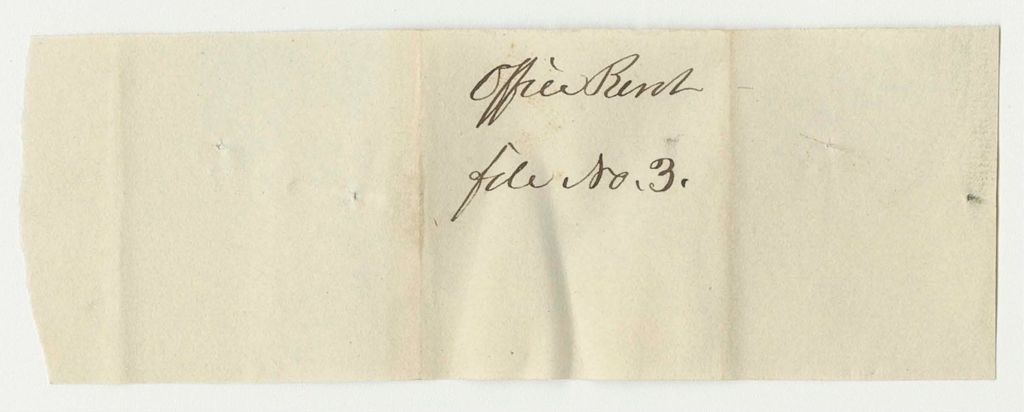 Office Rent
file No. 3.